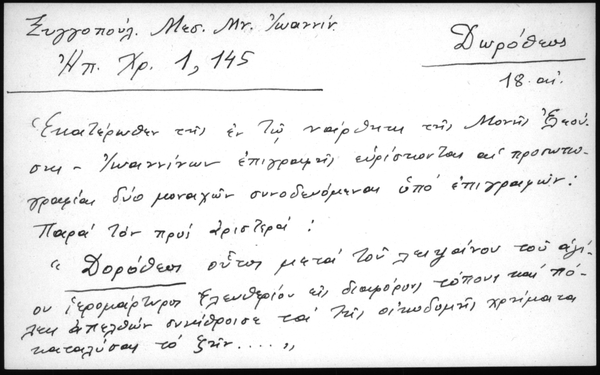 Ξυγγοπούλ. Μεσ. Μν. Ἰωαννίν.
Ἠπ. Χρ. 1, 145
Δωρόθεος
18. αἰ.
Ἑκατέρωθεν τῆς ἐν τῷ νάρθηκι τῆς Μονῆς Ἐλεού-
σης - Ἰωαννίνων ἐπιγραφῆς εὑρίσκονται αἱ προσωπο-
γραφίαι δύο μοναχῶν συνοδευόμεναι ὑπό ἐπιγραφῶν:
Παρά τόν πρός ἀριστερά:
" Δορόθεος οὗτος μετά τοῦ λειψάνου τοῦ ἁγί-
ου ἱερομάρτυρος Ἐλευθερίου εἰς διαφόρους τόπους καί πό-
λεις ἀπελθών συνήθροισε τά τῆς οἰκοδομῆς χρήματα
καταλύσας τό ζῆν.... "